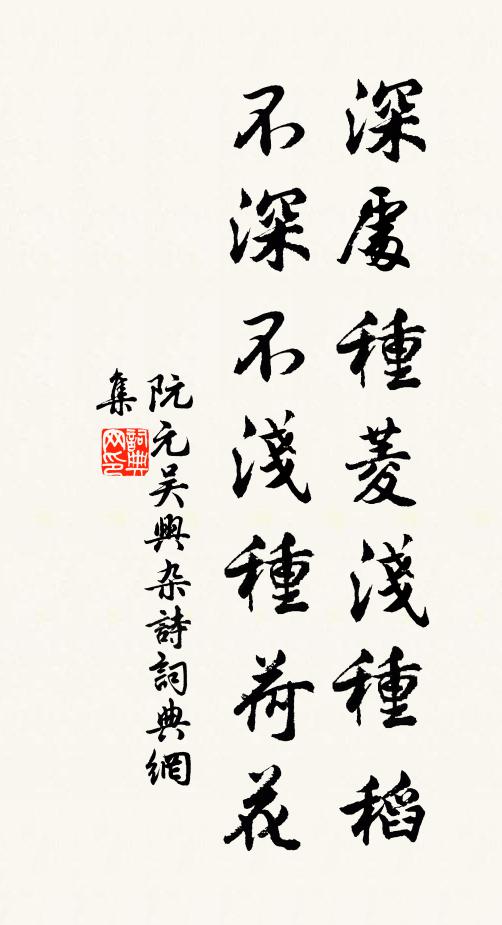 深處種菱淺種稻
不深不淺種荷花
阮元吳興杂詩詞典網
集
詞典网印